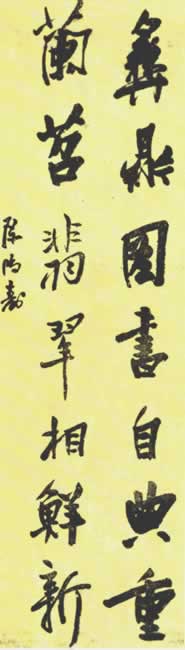 彝鼎圖書自典重
蘭苕翡翠相鮮新
陈鸿寿